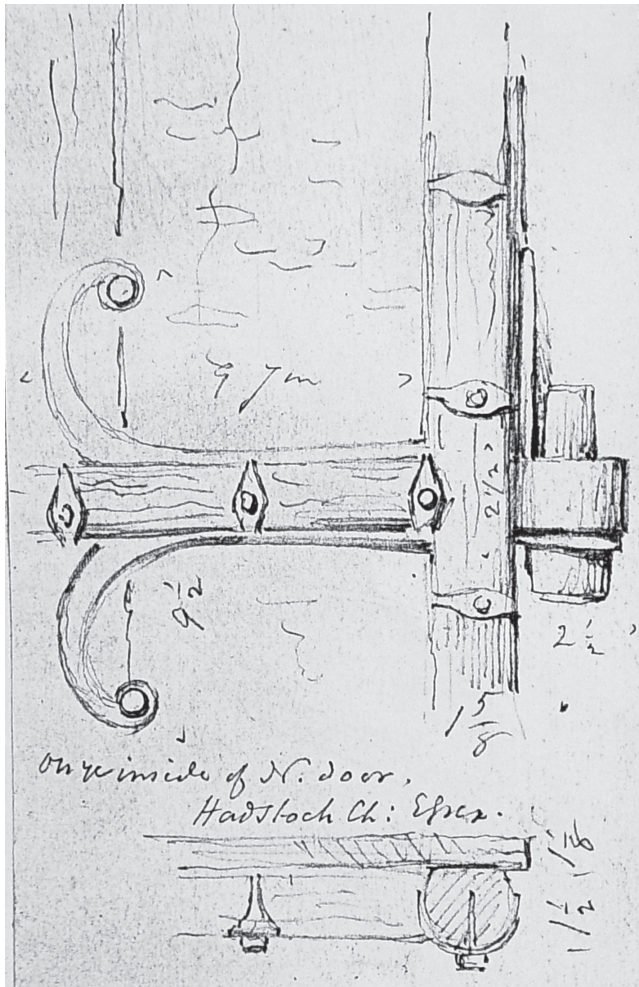 2 1/2
9 1/2
2 1/2
1 5/8
on ye inside of N. door,
Hadstock Ch: Essex.
1 1/2